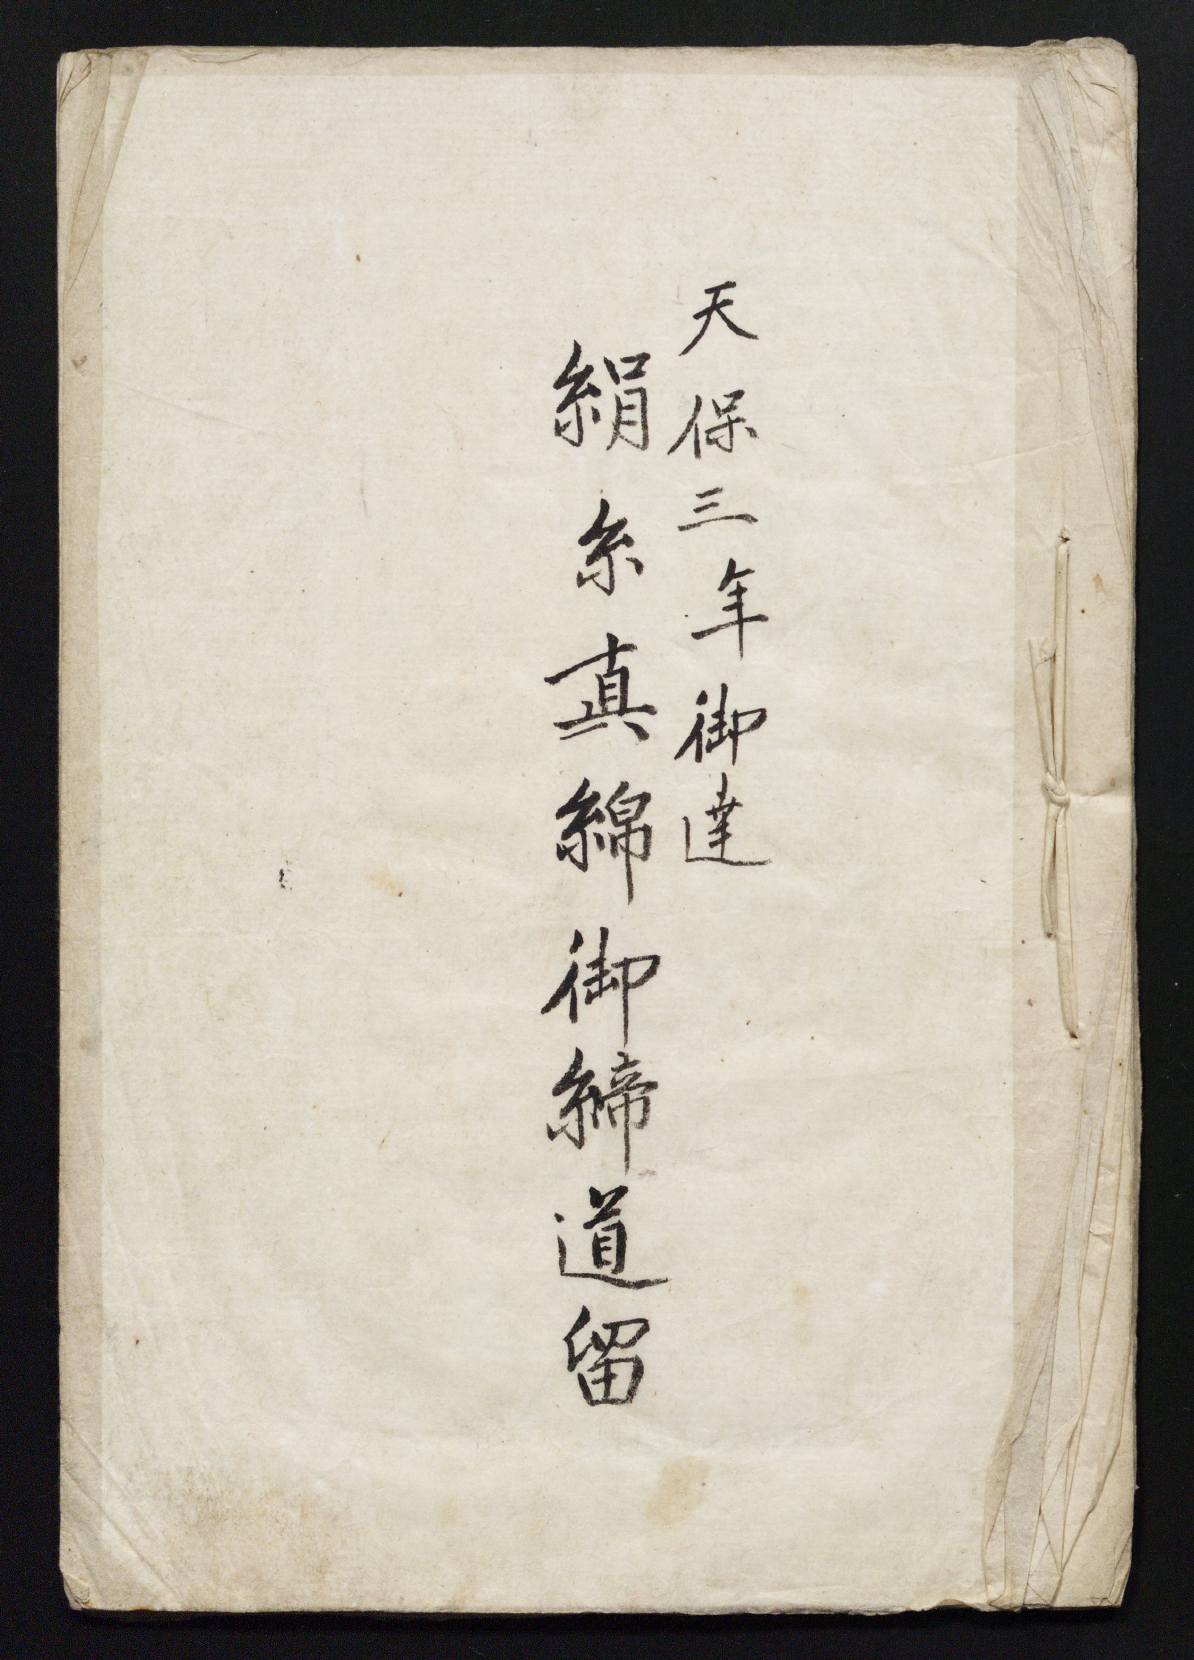 天保三年御達
絹糸真綿御締道留